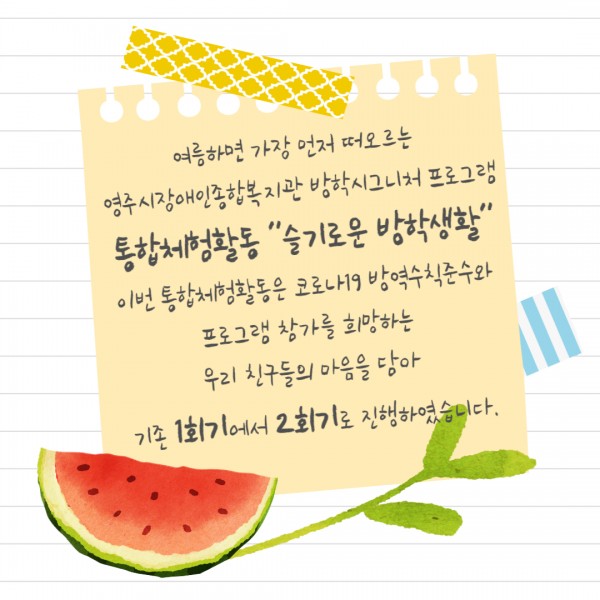 여름하면 가장 먼저 떠오르는
영주시장애인종합복지관 방학시그니처 프로그램
통합체험활동 "슬기로운 방학생활"
이번 통합체험활동은 코로나19 방역수칙준수와
프로그램 참가를 희망하는
우리 친구들의 마음을 담아
기존 1회기에서 2회기로 진행하였습니다.